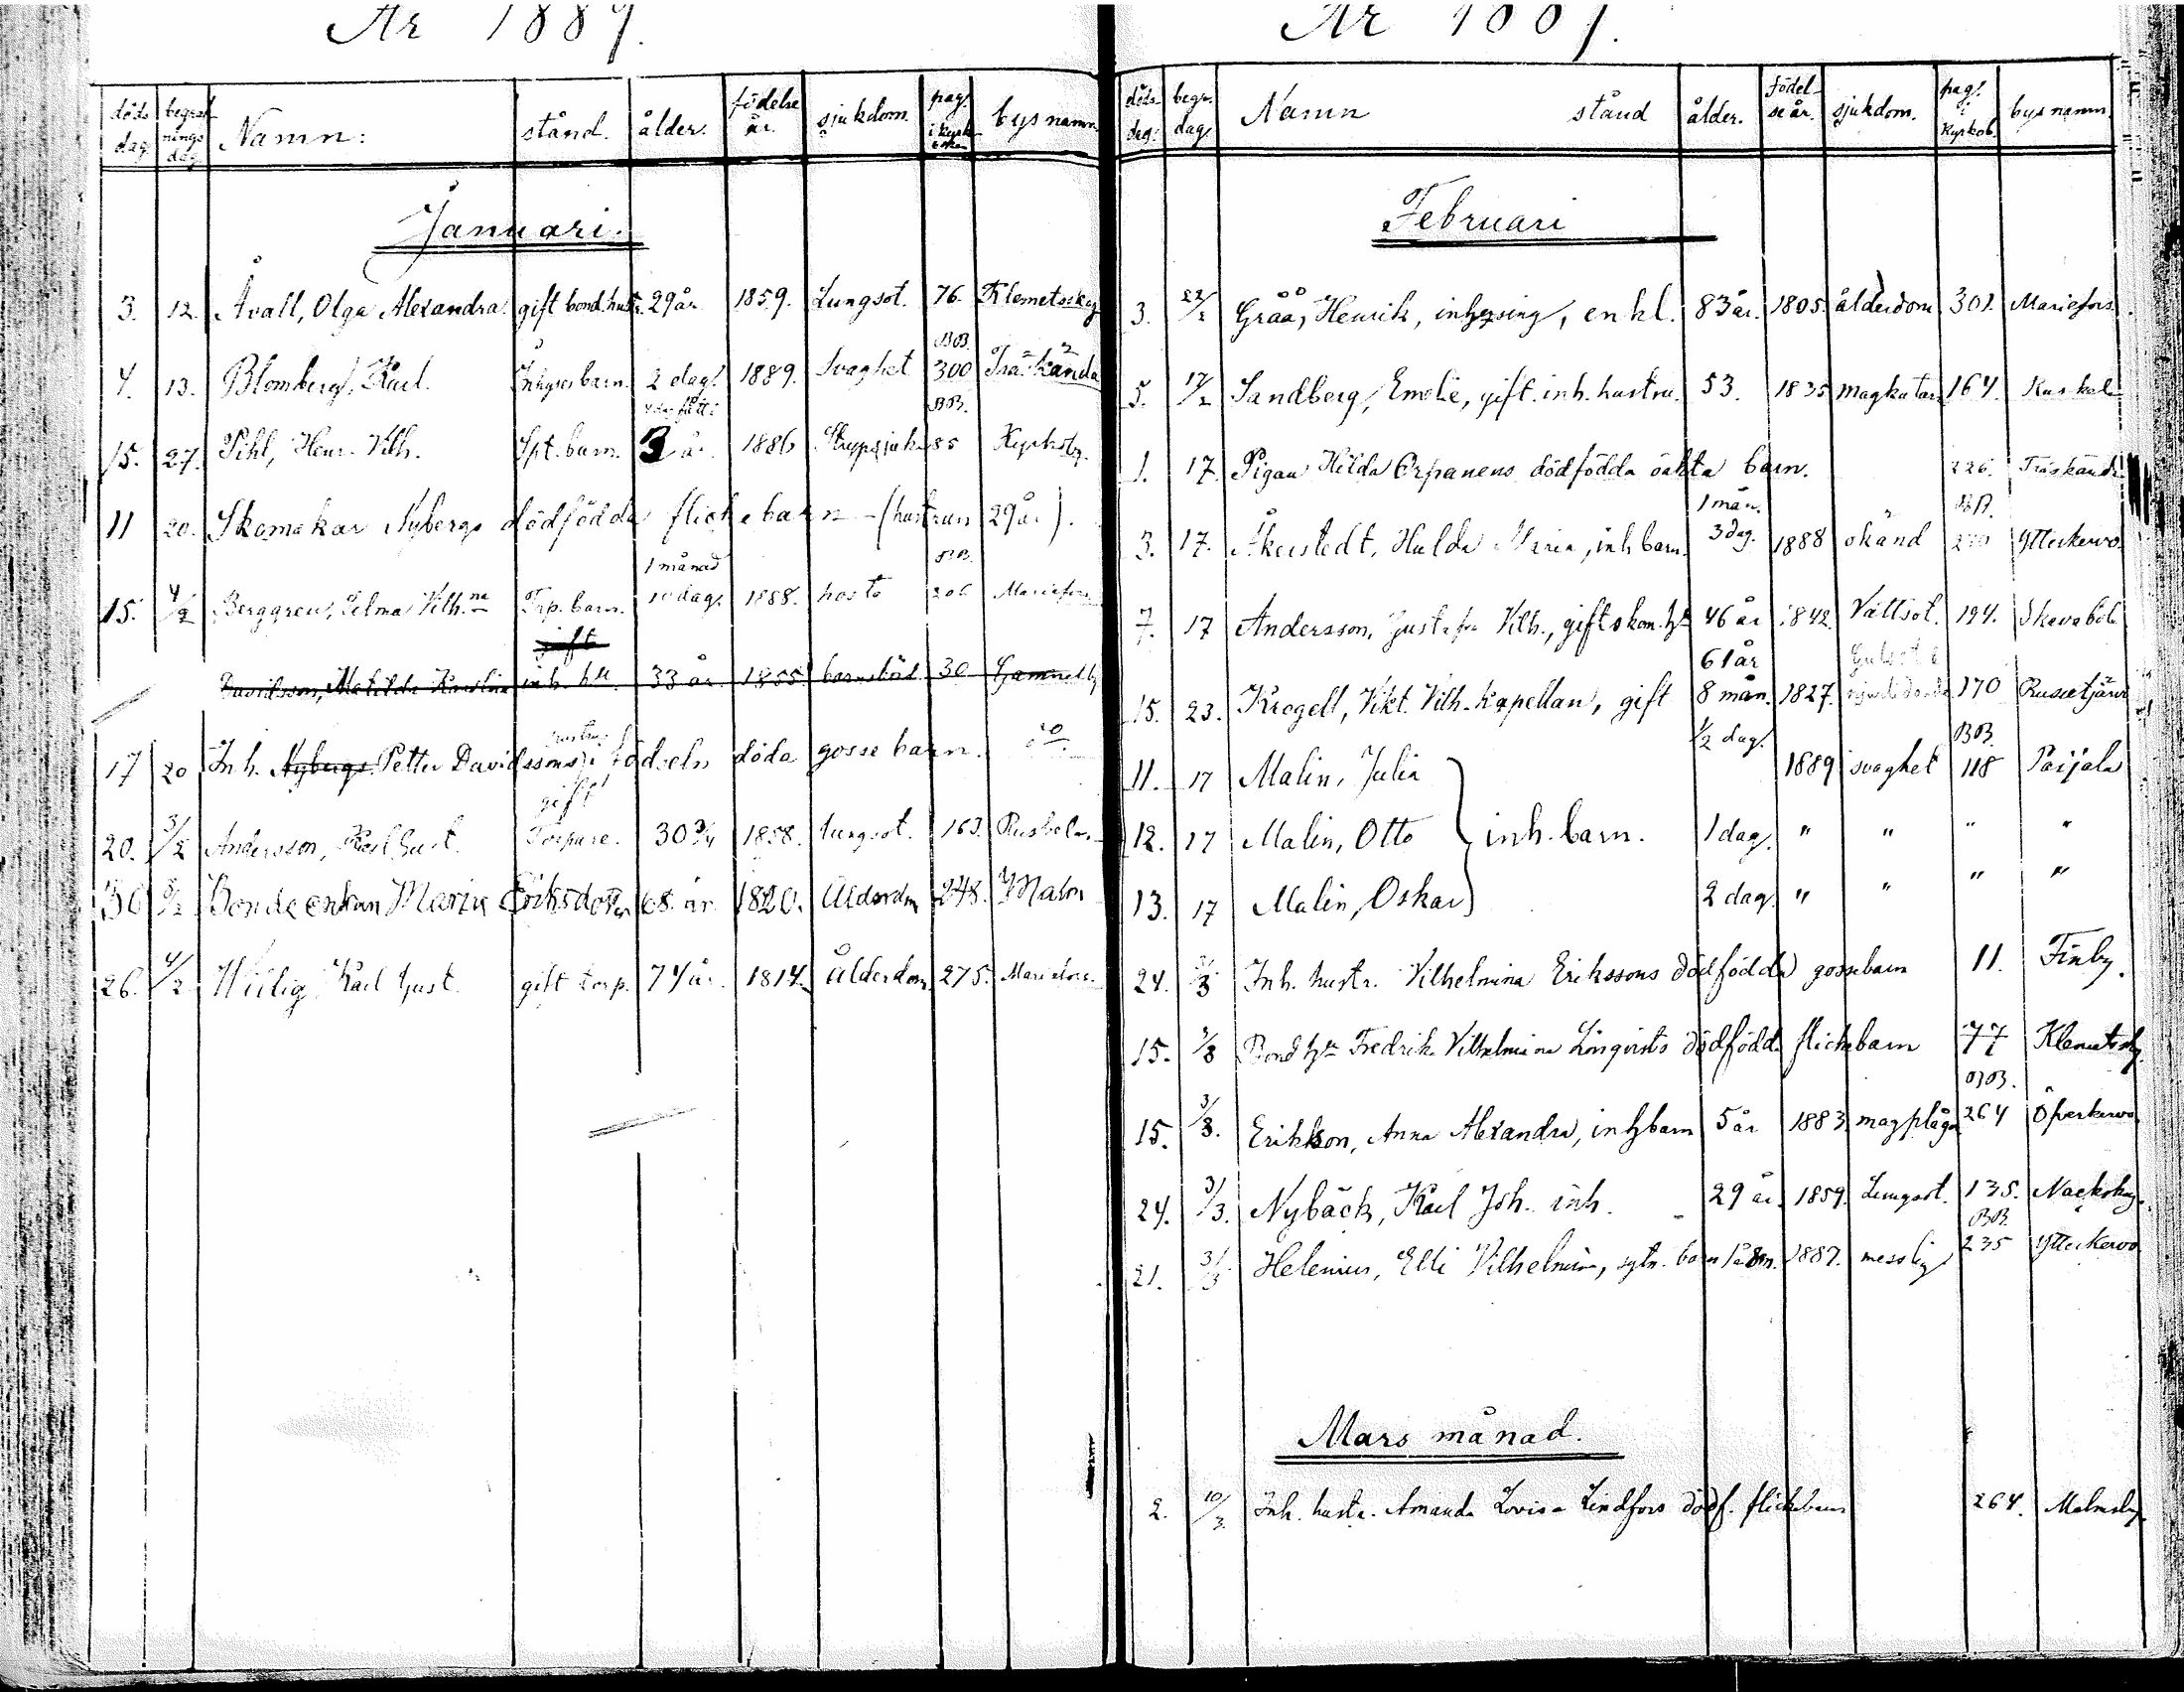 År 1889.
döds dag. begrafnings dag Namn: stånd. ålder. födelse år. sjukdom. pag. i kyrkboken bys namn.
Januari.
3. 12. Åvall, Olga Alexandra gift bond. hustr. 29 år 1859. Lungsot. 76. Klemetskog
4. 13. Blomberg, Karl. Inhyses barn. 2 dag. 1889. Svaghet BB. 300 Träskända
15. 27. Pihl, Henr. Vilh. Spt. barn. 3 år 1886 Strypsjuk BB. 85 Kyrkoby.
11 20. Skomakar Nybergs dödfödda flickebarn – (hustrun 29 år).
15. 4/2 Berggren, Selma Vilh.na Trp. barn. 1 månad 10 dag. 1888. hosta BB. 206 Mariefors
gift
Davidsson, Matilda Karolina inh. htr. 33 år 1855 barnsbörd 30 Gammelby
17 20 Inh. Nybergs Petter Davidssons hustrus i födseln döda gossebarn. do
gift
20. 3/2 Andersson, Karl Gust. Torpare. 30 3/4 1858. lungsot. 163.
30 3/2 Bondeenkan Maria Eriksdotter 68 år 1820. Ålderdm 248.
26. 4/2 Karl Gust. gift torp. 74 år. 1814. Ålderdom 275. Mariefors.
År 1889.
döds dag. begr. dag. Namn stånd ålder. födelse år. sjukdom. pag. i kyrkob. bys namn.
Februari
3. 22/2 Gråå, Henrik, inhysing, enkl. 83 år. 1805. ålderdom 301. Mariefors.
5. 17/2 Sandberg, Emelie, gift. inh. hustru. 53. 1835 magkatarr 164.
1. 17. Pigan Hilda Orpanens dödfödda oäkta barn. 226. Träskända
3. 17. Åkerstedt, Hulda Maria, inh. barn. 1 mån. 3 dag. 1888 okänd BB. Ytterkervo.
7. 17 Andersson, Gustafva Vilh., gift skom. h:u 46 år 1842. Vattsot. 194. Skavaböle
15. 23. Krogell, Vikt. Vilh. kapellan, gift 61 år 8 mån. 1827. 170 Rusutjärvi
11. 17 Malin, Julia 1/2 dag. 1889 svaghet BB. 118 Paijala
12. 17 Malin, Otto } inh. barn. 1 dag. " " " "
13. 17 Malin, Oskar 2 dag. " " " "
24. 3/3 Inh. hustr. Vilhelmina Erikssons dödfödda gossebarn 11. Finby.
15. 3/3 Bond h:u Fredrika Vilhelmina Lönqvists dödfödda flickebarn 77 Klemetskog.
15. 3/3. Eriksson, Anna Alexandra, inh. barn 5 år 1883 magplåga BB. 264 Öfverkervo
24. 3/3. Nybäck, Karl Joh. inh. 29 år. 1859. Lungsot. 135. Nackskog.
21. 3/3 Helenius, Elli Vilhelmina, sytn. barn 1 år 8 m. 1887. messling BB. 235 Ytterkervo
Mars månad.
2. 10/3. Inh. hustr. Amanda Lovisa Lindfors dödf. flickebarn 264. Malmsby.